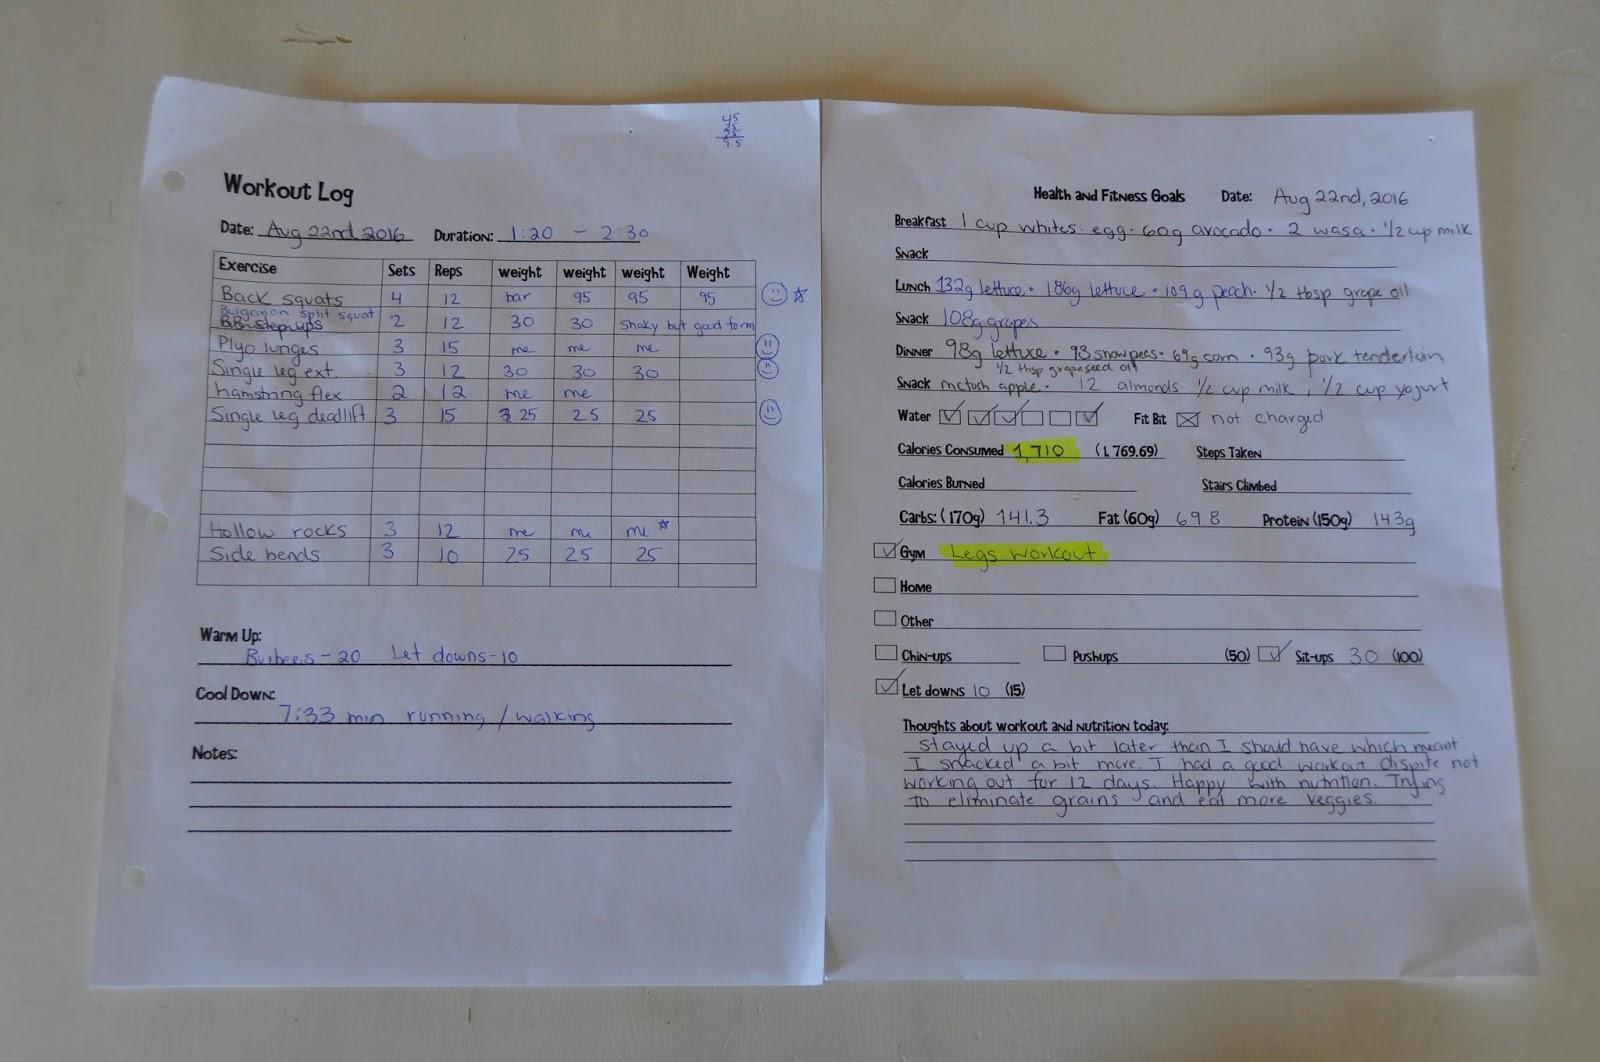 45
25
25
95
Workout Log
Date: Aug 22nd 2016 Duration: 1:20 - 2:30
Exercise Sets Reps weight weight weight Weight
Back squats 4 12 bar 95 95 95
Bulgarian split squat
BB step ups 2 12 30 30 shaky but good form
Plyo lunges 3 15 me me me
Single leg ext. 3 12 30 30 30
hamstring flex 2 12 me me
Single leg deadlift 3 15 25 25 25
Hollow rocks 3 12 me me me
Side bends 3 10 25 25 25
Warm Up:
Burbees - 20 Let downs - 10
Cool Down:
7:33 min running / walking
Notes:
Health and Fitness Goals Date: Aug 22nd, 2016
Breakfast 1 cup whites egg · 60g avocado · 2 wasa · 1/2 cup milk
Snack
Lunch 132g lettuce · 186g lettuce · 109g peach · 1/2 tbsp grape oil
Snack 108g grapes
Dinner 98g lettuce · 93 snowpees · 69g corn · 93g pork tenderloin
1/2 tbsp grapeseed oil
Snack mctosh apple · 12 almonds 1/2 cup milk, 1/2 cup yogurt
Water Fit Bit not charged
Calories Consumed 1,710 (1,769.69) Steps Taken
Calories Burned Stairs Climbed
Carbs: (170g) 141.3 Fat (60g) 69.8 Protein (150g) 143g
Gym Legs workout
Home
Other
Chin-ups Pushups (50) Sit-ups 30 (100)
Let downs 10 (15)
Thoughts about workout and nutrition today:
stayed up a bit later than I should have which meant
I snacked a bit more. I had a good workout dispite not
working out for 12 days. Happy with nutrition. Trying
to eliminate grains and eat more veggies.